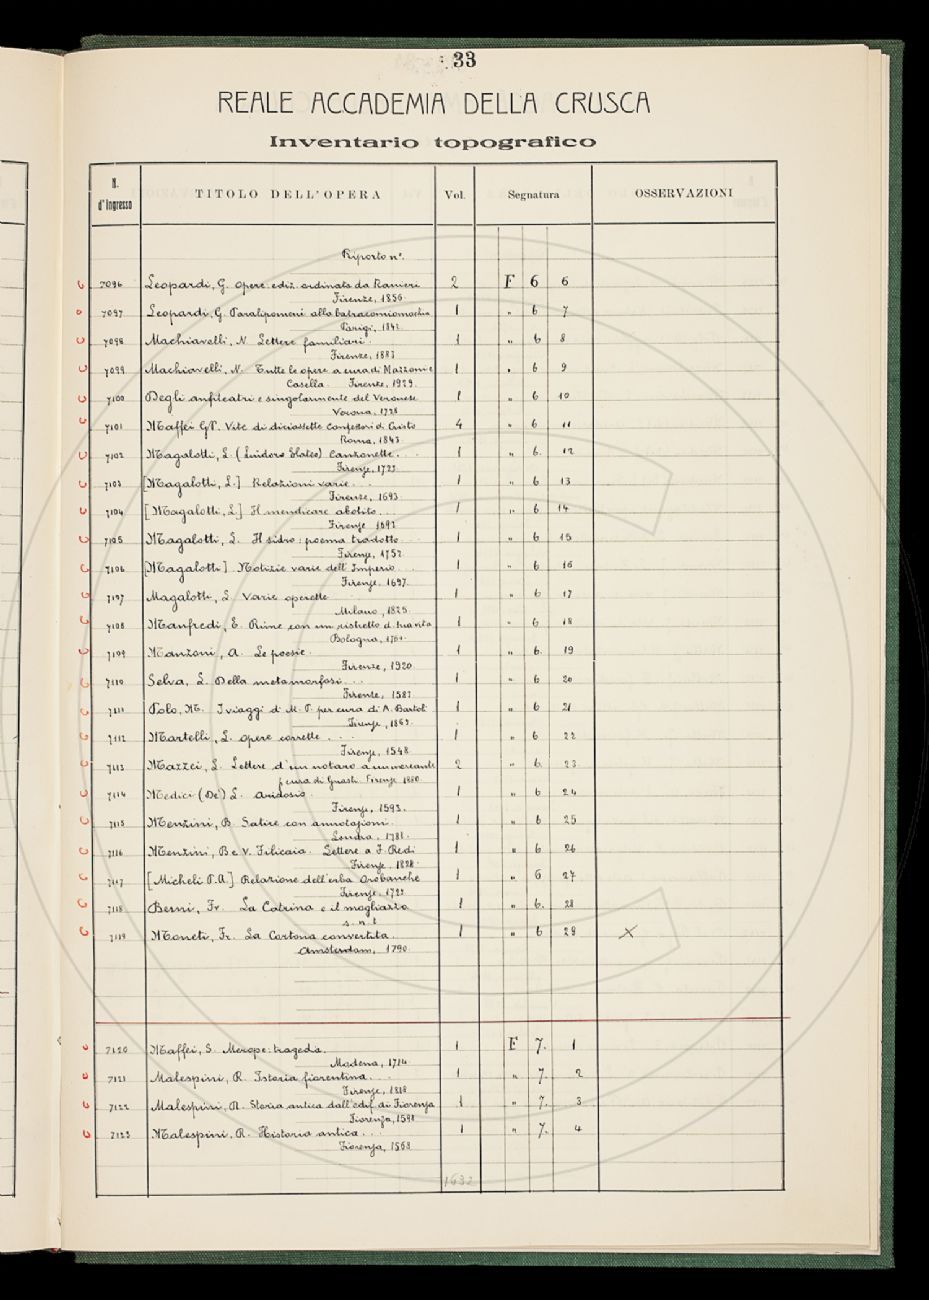 33
REALE ACCADEMIA DELLA CRUSCA
Inventario topografico
N. d'Ingresso TITOLO DELL'OPERA Vol. Segnatura OSSERVAZIONI
Riporto n°.
7096 Leopardi, G. Opere ediz. ordinata da Ranieri 2 F 6 6
Firenze, 1856
7097 Leopardi, G. Paralipomeni alla batracomiomachia 1 " 6 7
Parigi, 1842
7098 Machiavelli, N. Lettere familiari. 1 " 6 8
Firenze, 1883
7099 Machiavelli, N. Tutte le opere a cura di Mazzoni e 1 " 6 9
Casella. Firenze, 1929.
7100 Degli anfiteatri e singolarmente del Veronese 1 " 6 10
Verona, 1728
7101 Maffei G.P. Vite di diciassette Confessori di Cristo 4 " 6 11
Roma, 1843
7102 Magalotti, L. (Lindoro Elateo) Canzonette. . . 1 " 6. 12
Firenze, 1723
7103 [Magalotti, L.] Relazioni varie. . . 1 " 6 13
Firenze, 1693
7104 [Magalotti, L.] Il mendicare abolito. . . 1 " 6 14
Firenze 1693
7105 Magalotti, L. Il sidro: poema tradotto 1 " 6 15
Firenze, 1752
7106 [Magalotti] Notizie varie dell'Imperio. 1 " 6 16
Firenze, 1697.
7107 Magalotti, L. Varie operette 1 " 6 17
Milano, 1825.
7108 Manfredi, E. Rime con un ristretto d. sua vita 1 " 6 18
Bologna, 1760.
7109 Manzoni, A. Le poesie. 1 " 6. 19
Firenze, 1920
7110 Selva, L. Della metamorfosi. . . 1 " 6 20
Firenze, 1583
7111 Polo, M. I viaggi di M. P. per cura di A. Bartoli 1 " 6 21
Firenze, 1863.
7112 Martelli, L. Opere corrette . . . 1 " 6 22
Firenze, 1548
7113 Mazzei, L. Lettere d'un notaro a un mercante 2 " 6. 23
p cura di Guasti. Firenze 1880.
7114 Medici (De') L. Aridosio. 1 " 6 24
Firenze, 1593.
7115 Menzini, B. Satire con annotazioni. 1 " 6 25
Londra, 1781.
7116 Menzini, B e V. Filicaia. Lettere a F. Redi 1 " 6 26
Firenze, 1828.
7117 [Micheli P.A.] Relazione dell'erba Orobanche 1 " 6 27
Firenze, 1723
7118 Berni, Fr. La Catrina e il mogliazzo 1 " 6. 28
s. n. t
7119 Moneti, Fr. La Cortona convertita. 1 " 6 29 X
Amsterdam, 1790.
7120 Maffei, S. Merope: tragedia. 1 F 7. 1
Modena, 1714
7121 Malespini, R. Istoria fiorentina. . . 1 " 7. 2
Firenze, 1818
7122 Malespini, R. Storia antica dall'edif. di Fiorenza 1 " 7. 3
Fiorenza, 1598
7123 Malespini, R. Historia antica. . . 1 " 7. 4
Fiorenza, 1568
1632